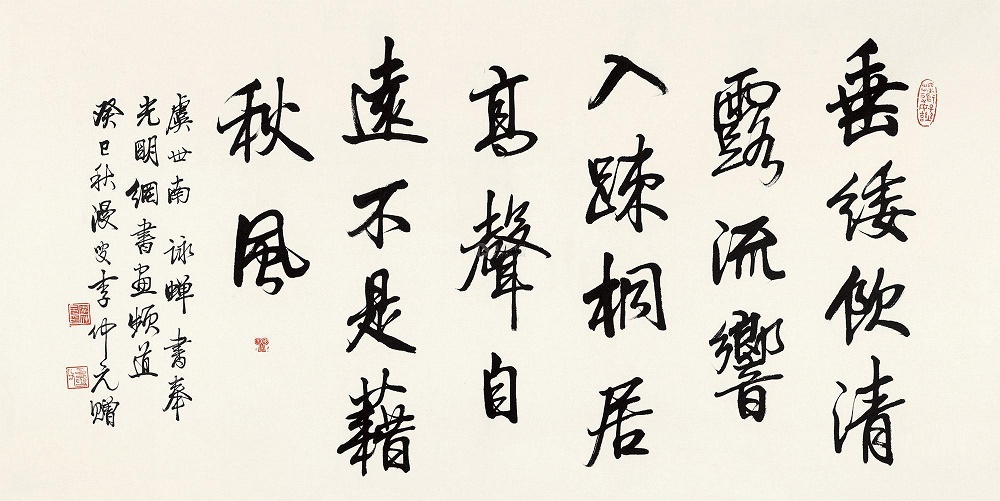 垂緌飲清
露流響
入疎桐居
高聲自
遠不是藉
秋風
虞世南 詠蟬 書奉
光明網書畫頻道
癸巳秋漫叟李仲元贈